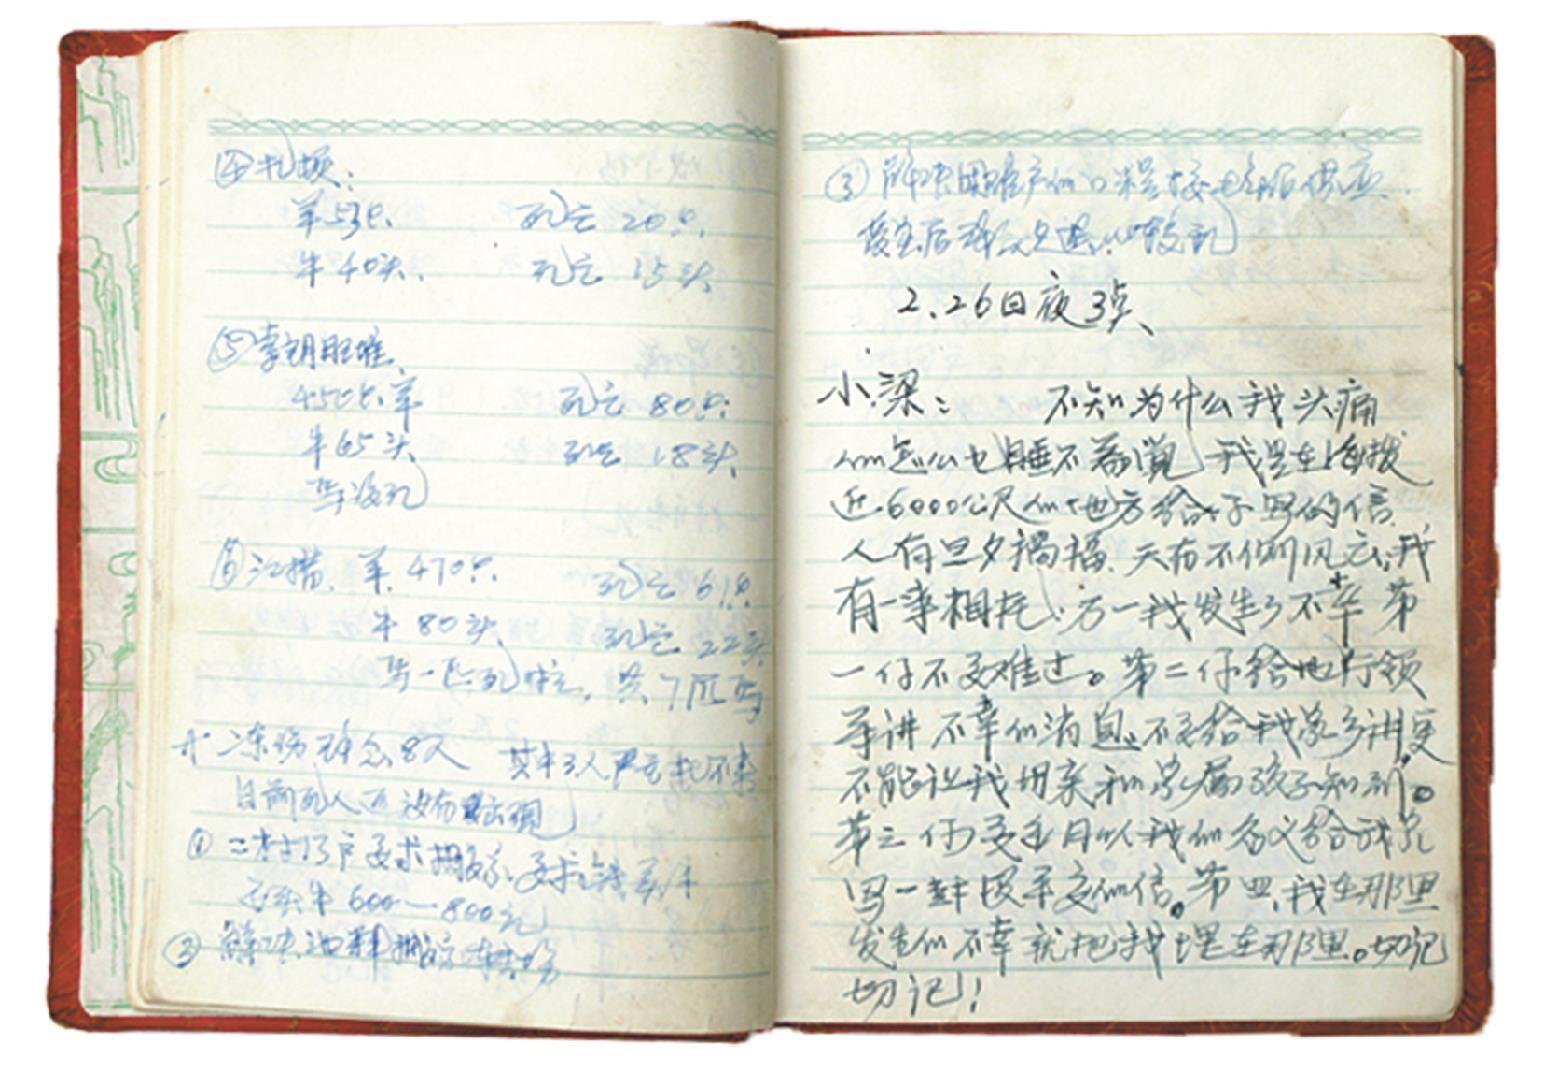 ④扎顿:
羊53只. 死亡 20只.
牛40头. 死亡 15头
⑤
450只羊 死亡 80只.
牛65头 死亡 18头
马没死
⑥江措. 羊. 470只. 死亡 61只
牛 80头 死亡 22头
马一匹死亡, 共7匹马
十. 冻伤群众8人 其中3人严重起不来
目前死人还没有出现
①二村13户要求搬家, 要求钱买牛
牛 600—800元
② 解决油料
③ 解决困难户的口粮
2、26日夜3点、
小梁: 不知为什么我头痛
的怎么也睡不着觉, 我是在海拔
近6000公尺的地方给你写的信.
人有旦夕祸福、天有不侧风云, 我
有一事相托: 万一我发生了不幸 第
一仔不要难过。第二仔给地行领
导讲不幸的消息, 不要给我家乡讲, 更
不能让我母亲和家属孩子知到。
第三 你要每月以我的名义给我家
写一封报平安的信。第四, 我在那里
发生的不幸就把我埋在那里。切记
切记!